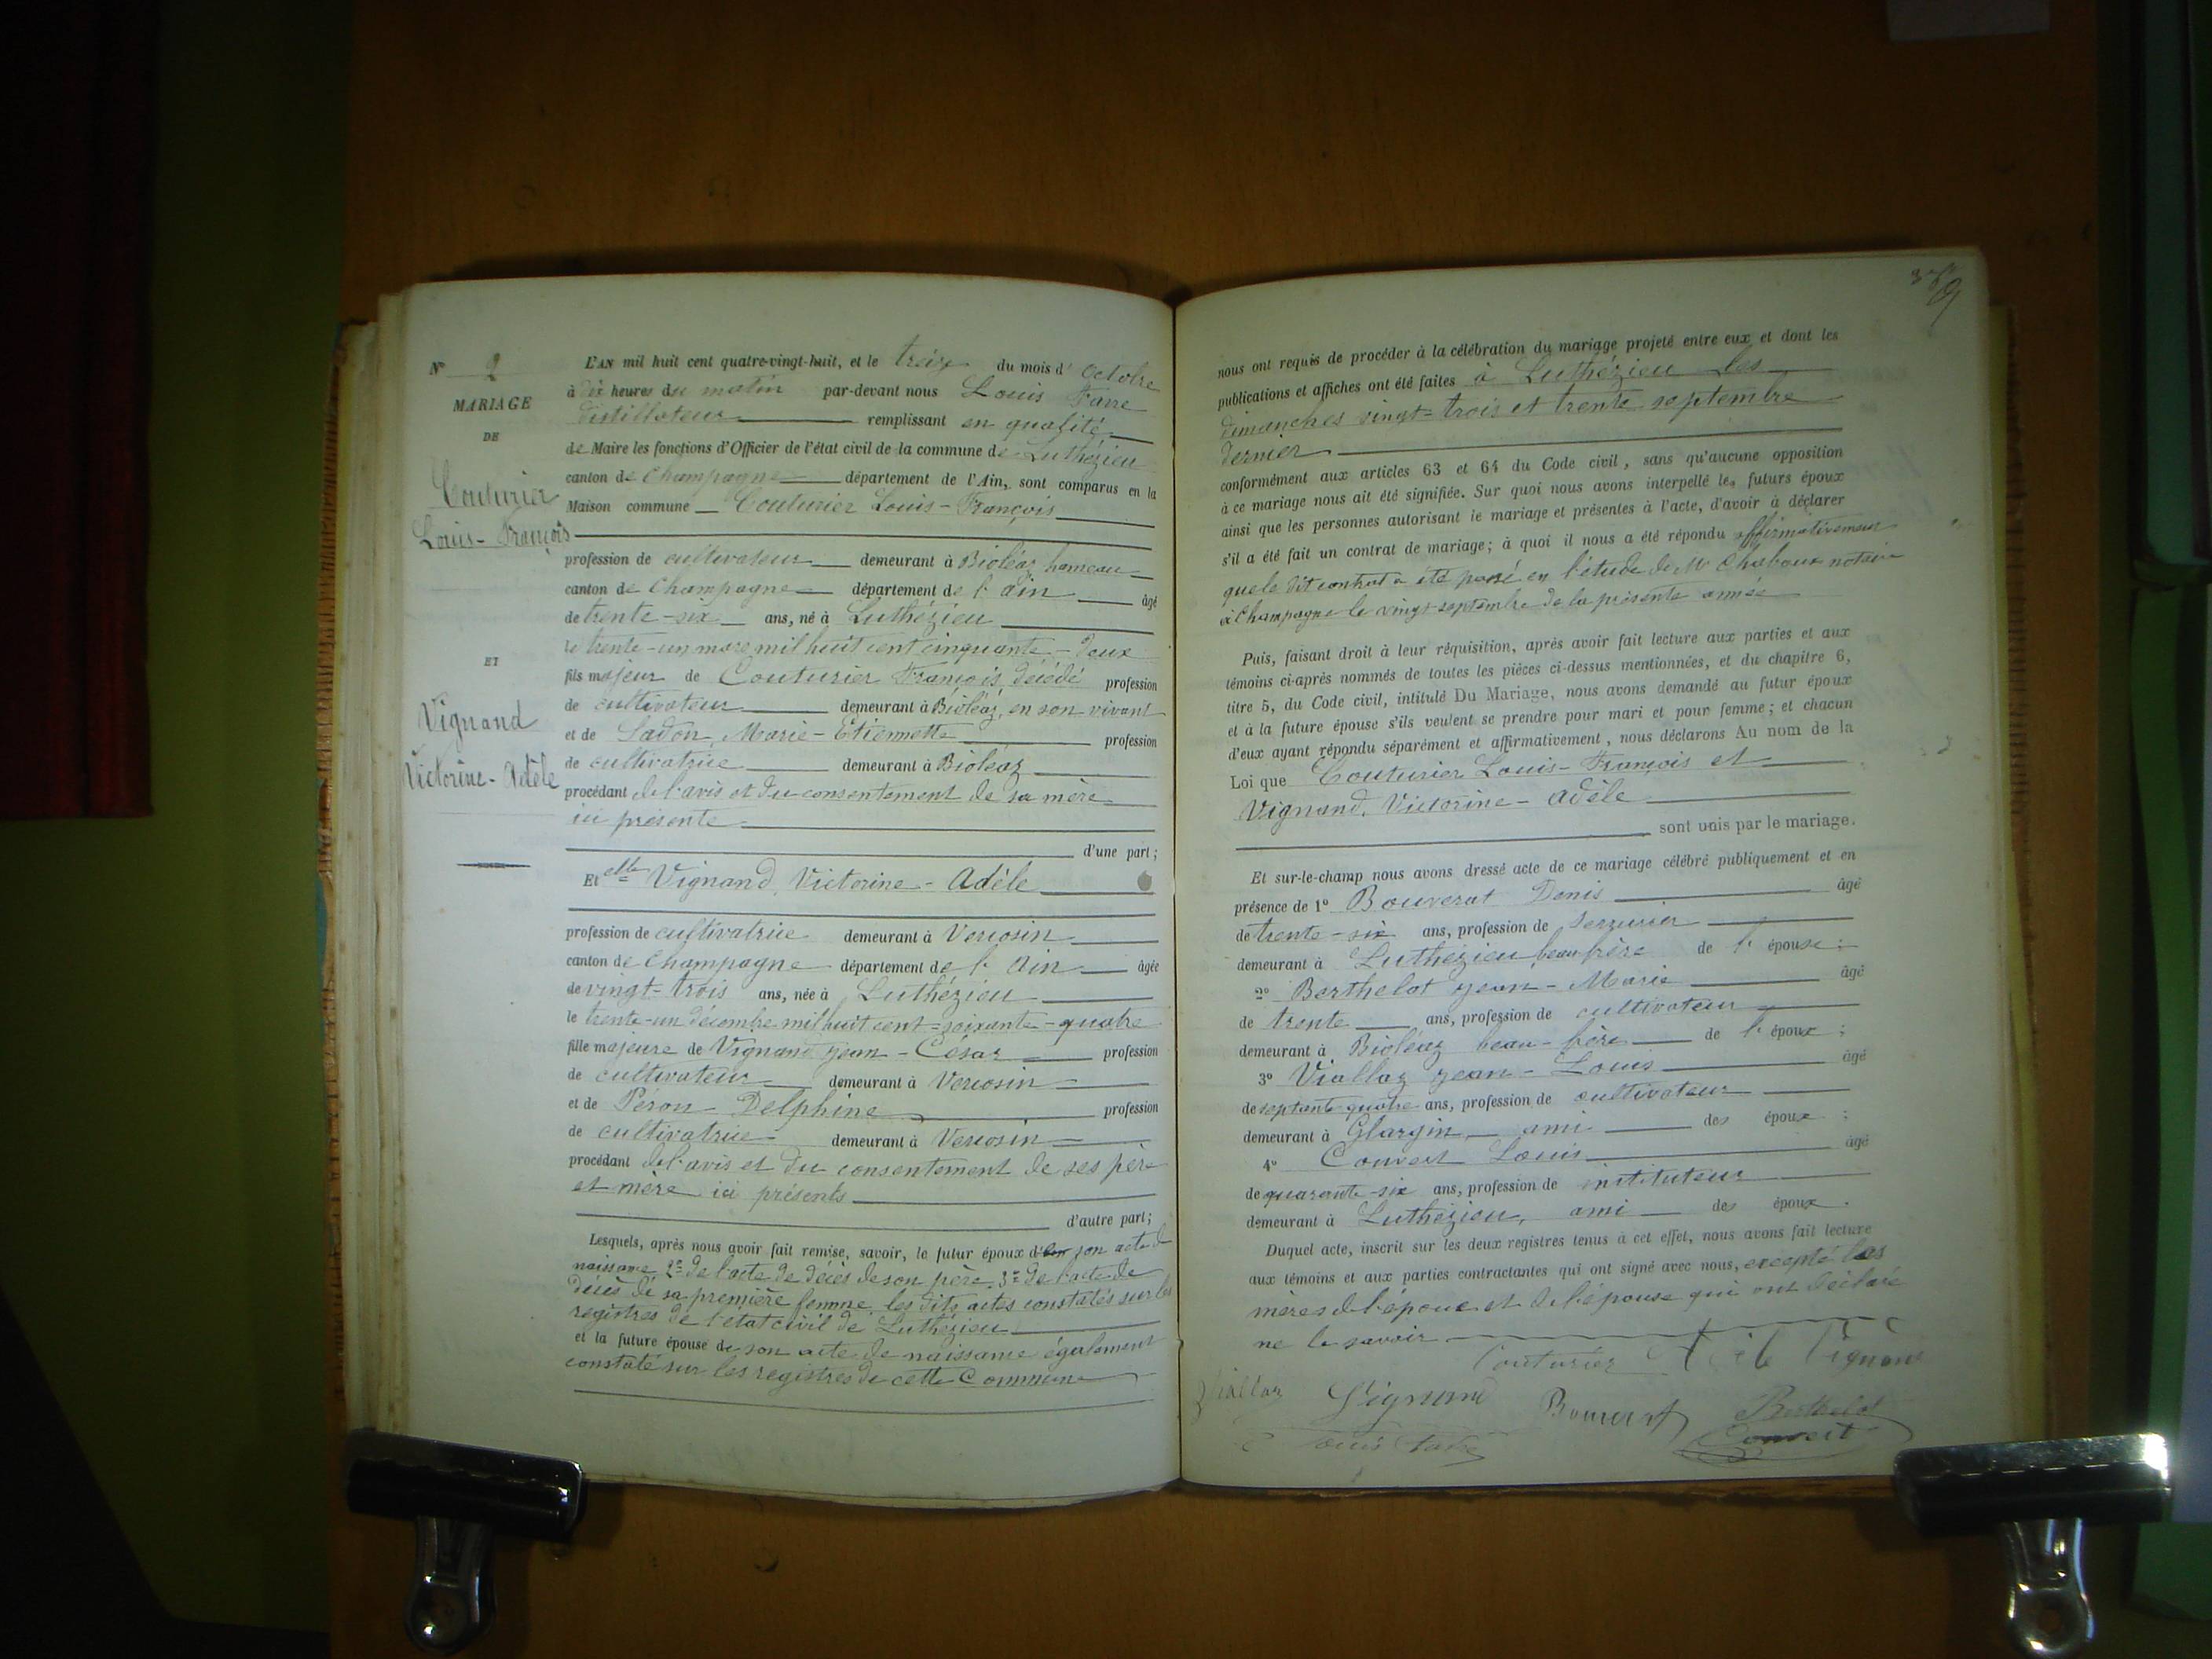 N° 2
MARIAGE
DE
Couturier
Louis-François
ET
Vignand
Victorine-Adèle
L'AN mil huit cent quatre-vingt-huit, et le treize du mois d'Octobre
à dix heures du matin par-devant nous Louis Favre
distillateur remplissant en qualité
de Maire les fonctions d'Officier de l'état civil de la commune de Luthézieu
canton de Champagne département de l'Ain, sont comparus en la
Maison commune Couturier Louis-François
profession de cultivateur demeurant à Bioléaz hameau
canton de Champagne département de l'Ain âgé
de trente-six ans, né à Luthézieu
le trente-un mars mil huit cent cinquante-deux
fils majeur de Couturier François décédé profession
de cultivateur demeurant à Bioléaz, en son vivant
et de Ladon, Marie-Etiennette profession
de cultivatrice demeurant à Bioléaz
procédant de l'avis et du consentement de sa mère
ici présente
d'une part;
Et elle Vignand, Victorine-Adèle
profession de cultivatrice demeurant à Vercosin
canton de Champagne département de l'Ain âgée
de vingt-trois ans, née à Luthézieu
le trente-un décembre mil huit cent-soixante-quatre
fille majeure de Vignand Jean-César profession
de cultivateur demeurant à Vercosin
et de Péron Delphine profession
de cultivatrice demeurant à Vercosin
procédant de l'avis et du consentement de ses père
et mère ici présents
d'autre part;
Lesquels, après nous avoir fait remise, savoir, le futur époux de son acte de
naissance 2° de l'acte de décès de son père. 3° de l'acte de
décès de sa première femme, les dits actes constatés sur les
registres de l'état civil de Luthézieu
et la future épouse de son acte de naissance également
constaté sur les registres de cette Commune
9
nous ont requis de procéder à la célébration du mariage projeté entre eux et dont les
publications et affiches ont été faites à Luthézieu les
dimanches vingt-trois et trente septembre
dernier
conformément aux articles 63 et 64 du Code civil, sans qu'aucune opposition
à ce mariage nous ait été signifiée. Sur quoi nous avons interpellé les futurs époux
ainsi que les personnes autorisant le mariage et présentes à l'acte, d'avoir à déclarer
s'il a été fait un contrat de mariage; à quoi il nous a été répondu affirmativement
que le dit contrat a été passé en l'étude de Mr Chaboux notaire
à Champagne le vingt septembre de la présente année
Puis, faisant droit à leur réquisition, après avoir fait lecture aux parties et aux
témoins ci-après nommés de toutes les pièces ci-dessus mentionnées, et du chapitre 6,
titre 5, du Code civil, intitulé Du Mariage, nous avons demandé au futur époux
et à la future épouse s'ils veulent se prendre pour mari et pour femme; et chacun
d'eux ayant répondu séparément et affirmativement, nous déclarons Au nom de la
Loi que Couturier Louis-François et
Vignand, Victorine-Adèle
sont unis par le mariage.
Et sur-le-champ nous avons dressé acte de ce mariage célébré publiquement et en
présence de 1° Bouverat Denis âgé
de trente-six ans, profession de Serrurier
demeurant à Luthézieu beau frère de l'épouse;
2° Berthelot Jean-Marie âgé
de trente ans, profession de cultivateur
demeurant à Bioléaz beau-frère de l'époux;
3° Viallaz Jean-Louis âgé
de septante quatre ans, profession de cultivateur
demeurant à Glargin, ami des époux;
4° Convert Louis âgé
de quarante-six ans, profession de instituteur
demeurant à Luthézieu, ami des époux.
Duquel acte, inscrit sur les deux registres tenus à cet effet, nous avons fait lecture
aux témoins et aux parties contractantes qui ont signé avec nous, excepté les
mères de l'époux et de l'épouse qui ont déclaré
ne le savoir
Couturier Vignand
Viallaz Vignand Bouverat Berthelot
Louis Favre Convert